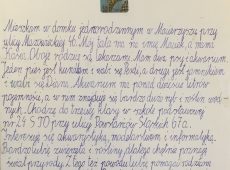 Mieszkam w domku jednorodzinnym w Mławszyźnie przy
ulicy Mazowieckiej 40. Mój tata ma na imię Marek, a mama
Kasia. Moje rodzice są lekarzami. Mam dwa psy i akwarium.
Jeden pies jest kundlem i wabi się Kuba, a drugi jest jamnikiem
i wabi się Dano. Akwarium ma ponad dziesięć litrów
pojemności, a w nim znajduje się bardzo dużo ryb i roślin wod-
nych. Chodzę do trzeciej klasy w szkole podstawowej
nr 24 STO przy ulicy Pawlatowskich 67a.
Interesuję się akwarystyką, modelarstwem i informatyką.
Bardzo lubię zwierzęta i rośliny, dlatego chętnie poznaję
świat przyrody. Z tego też powodu lubię pomagać rodzicom